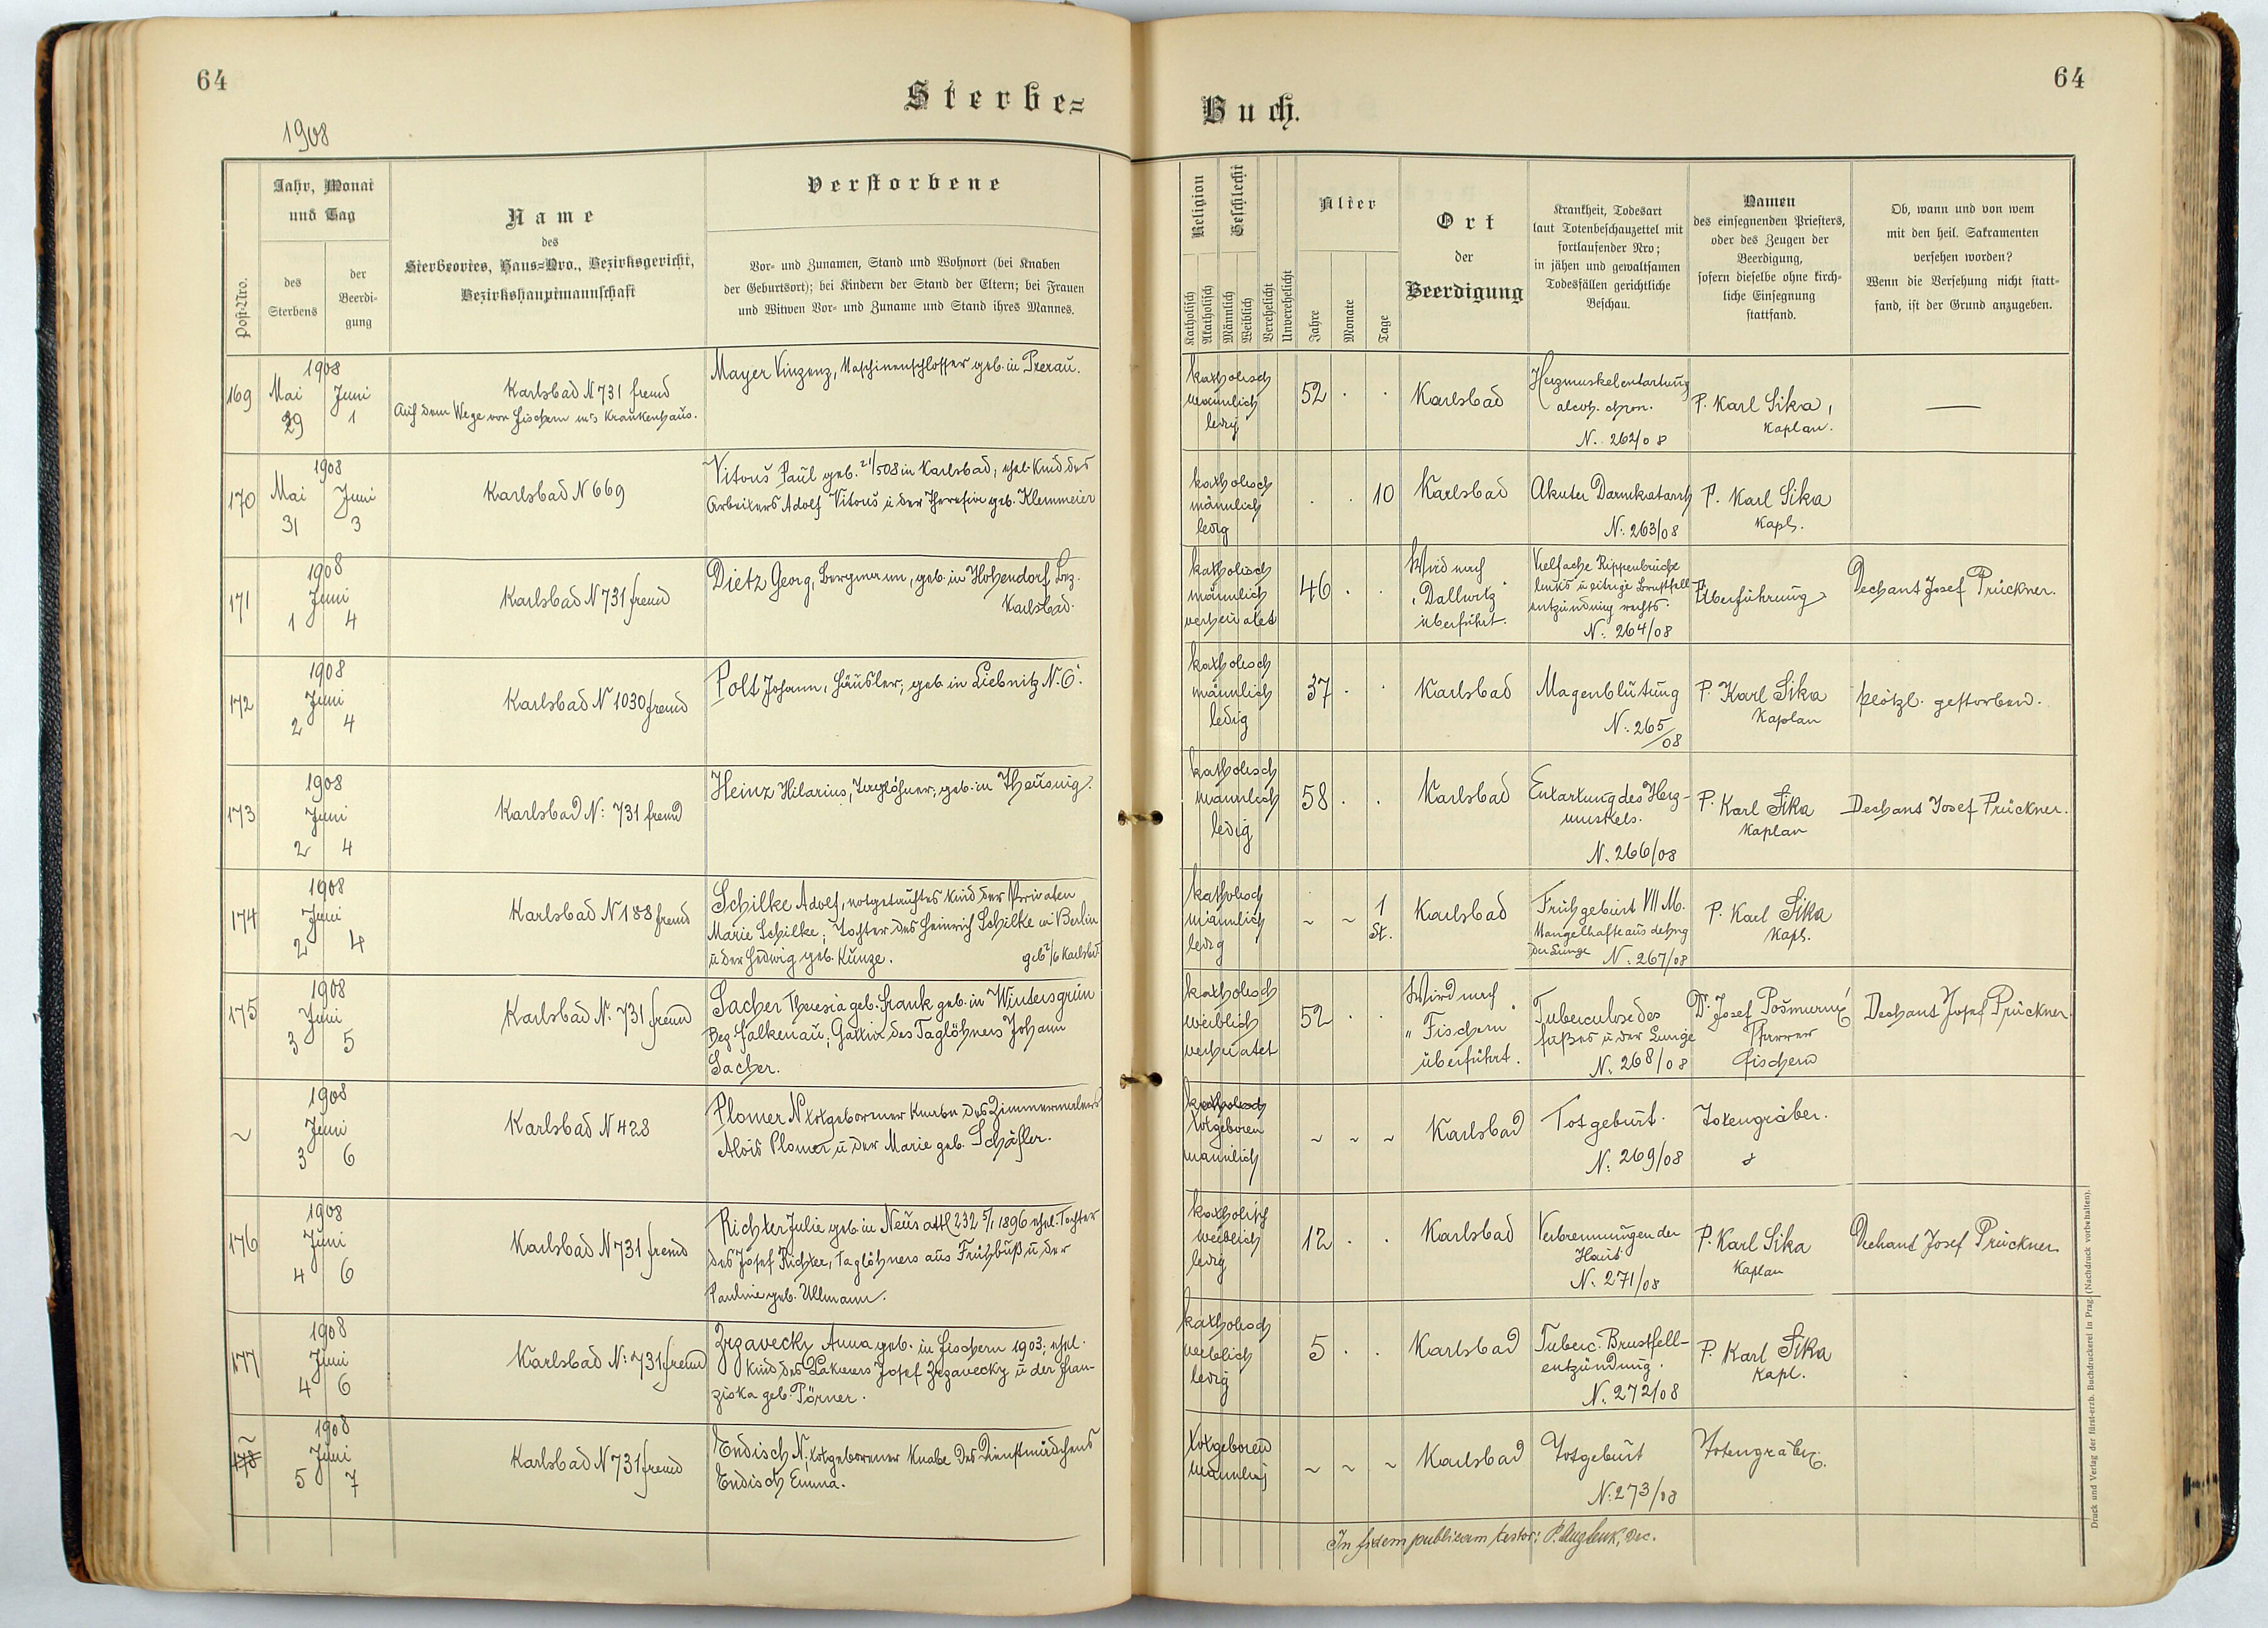 64
Sterbe=
1908
Post-Nro.
Jahr, Monat
und Tag
des
Sterbens
der
Beerdi-
gung
Name
des
Sterbeortes, Haus=Nro., Bezirksgericht,
Bezirkshauptmannschaft
Verstorbene
Vor- und Zunamen, Stand und Wohnort (bei Knaben
der Geburtsort); bei Kindern der Stand der Eltern; bei Frauen
und Witwen Vor- und Zuname und Stand ihres Mannes.
169
1908
Mai 29
Juni 1
Karlsbad N 731 fremd
Auf dem Wege von Fischern in's Krankenhaus.
Mayer Vinzenz, Maschinenschlosser geb. in Prerau.
170
1908
Mai 31
Juni 3
Karlsbad N 669
Vitouš Paul geb. 21/5 08 in Karlsbad, ehel. Kind des
Arbeiters Adolf Vitouš u der Theresia geb. Klemmeier
171
1908
Juni
1 4
Karlsbad N 731 fremd
Dietz Georg, Bergmann, geb. in Hohendorf Bez.
Karlsbad.
172
1908
Juni
2 4
Karlsbad N 1030 fremd
Polt Johann, Häusler, geb. in Liebnitz N. 6.
173
1908
Juni
2 4
Karlsbad N: 731 fremd
Heinz Hilarius, Taglöhner, geb. in Theusnig.
174
1908
Juni
2 4
Karlsbad N 188 fremd
Schilke Adolf, notgetauftes Kind der Privaten
Marie Schilke; Tochter des Heinrich Schilke in Berlin
u der Hedwig geb. Kunze. geb 2/6 Karlsbd.
175
1908
Juni
3 5
Karlsbad N. 731 fremd
Sacher Theresia geb. Frank geb. in Wintersgrün
Bez. Falkenau; Gattin des Taglöhners Johann
Sacher.
~
1908
Juni
3 6
Karlsbad N 428
Plomer N totgeborener Knabe des Zimmermalers
Alois Plomer u der Marie geb. Schäfler.
176
1908
Juni
4 6
Karlsbad N 731 fremd
Richter Julie geb. in Neusattl 232 5/1 1896 ehel. Tochter
des Josef Richter, Taglöhners aus Frühbuß u der
Pauline geb. Ullmann.
177
1908
Juni
4 6
Karlsbad N: 731 fremd
Zrzavecky Anna geb. in Fischern 1903; ehel.
Kind des Lakierers Josef Zrzavecky u der Fran-
ziska geb. Pörner.
~
178
1908
Juni
5 7
Karlsbad N 731 fremd
Endisch N, totgeborener Knabe des Dienstmädchens
Endisch Emma.
64
Buch.
Religion
Geschlecht
Katholisch
Akatholisch
Männlich
Weiblich
Verehelicht
Unverehelicht
Alter
Jahre
Monate
Tage
Ort
der
Beerdigung
Krankheit, Todesart
laut Totenbeschauzettel mit
fortlaufender Nro;
in jähen und gewaltsamen
Todesfällen gerichtliche
Beschau.
Namen
des einsegnenden Priesters,
oder des Zeugen der
Beerdigung,
sofern dieselbe ohne kirch-
liche Einsegnung
stattfand.
Ob, wann und von wem
mit den heil. Sakramenten
versehen worden?
Wenn die Versehung nicht statt-
fand, ist der Grund anzugeben.
katholisch
männlich
ledig
52 . .
Karlsbad
Herzmuskelentartung
alcoh. chron.
N. 262/08
P. Karl Sika,
Kaplan.
—
katholisch
männlich
ledig
. . 10
Karlsbad
Akuter Darmkatarrh
N. 263/08
P. Karl Sika
Kapl.
katholisch
männlich
verheiratet
46 . .
Wird nach
"Dallwitz"
überführt.
Vielfache Rippenbrüche
links u eitrige Brustfell-
entzündung rechts.
N. 264/08
Überführung
Dechant Josef Prückner.
katholisch
männlich
ledig
37 . .
Karlsbad
Magenblutung
N. 265/08
P. Karl Sika
Kaplan
plötzl. gestorben.
katholisch
männlich
ledig
58 . .
Karlsbad
Entartung des Herz-
muskels.
N. 266/08
P. Karl Sika
Kaplan
Dechant Josef Prückner.
katholisch
männlich
ledig
~ ~ 1 St.
Karlsbad
Frühgeburt VII M.
Mangelhafte ausdehng
der Lunge N. 267/08
P. Karl Sika
Kapl.
katholisch
weiblich
verheiratet
52 . .
Wird nach
"Fischern"
überführt.
Tuberculose des
fußes u der Lunge
N. 268/08
Dr. Josef Pošmurný
Pfarrer
Fischern
Dechant Josef Prückner.
katholisch
totgeboren
männlich
~ ~ ~
Karlsbad
Totgeburt.
N. 269/08
Totengräber.
katholisch
weiblich
ledig
12 . .
Karlsbad
Verbrennungen der
Haut
N. 271/08
P. Karl Sika
Kaplan
Dechant Josef Prückner.
katholisch
weiblich
ledig
5 . .
Karlsbad
Tuberc. Brustfell-
entzündung.
N. 272/08
P. Karl Sika
Kapl.
totgeboren
männlich
~ ~ ~
Karlsbad
Totgeburt
N. 273/08
Totengräber.
In fidem publicam testor: P. Aug Lenk, Dec.
Druck und Verlag der fürst-erzb. Buchdruckerei in Prag. (Nachdruck vorbehalten).